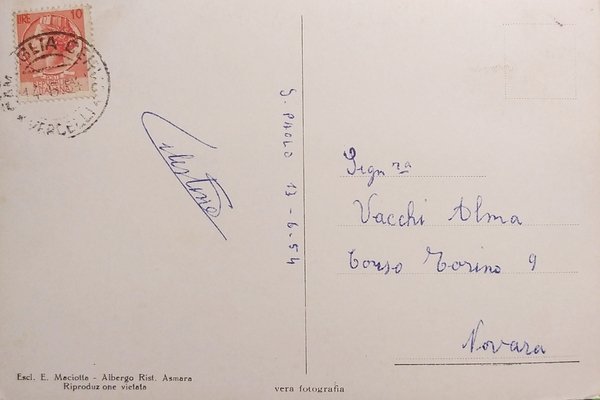 LIRE 10
VERCELLI
Celestino
S. PAOLO 13-6-54
Sign.ra
Vacchi Alma
Corso Torino 9
Novara
Escl. E. Maciotta - Albergo Rist. Asmara
Riproduz one vietata
vera fotografia